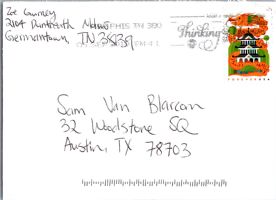 Zoe Gurney
2104 Dunbeith Nohw
MPHIS TN 380
Germantown, TN 38139
Thinking
Sam Van Blarcan
32 Woodstone SQ
Austin, TX 78703